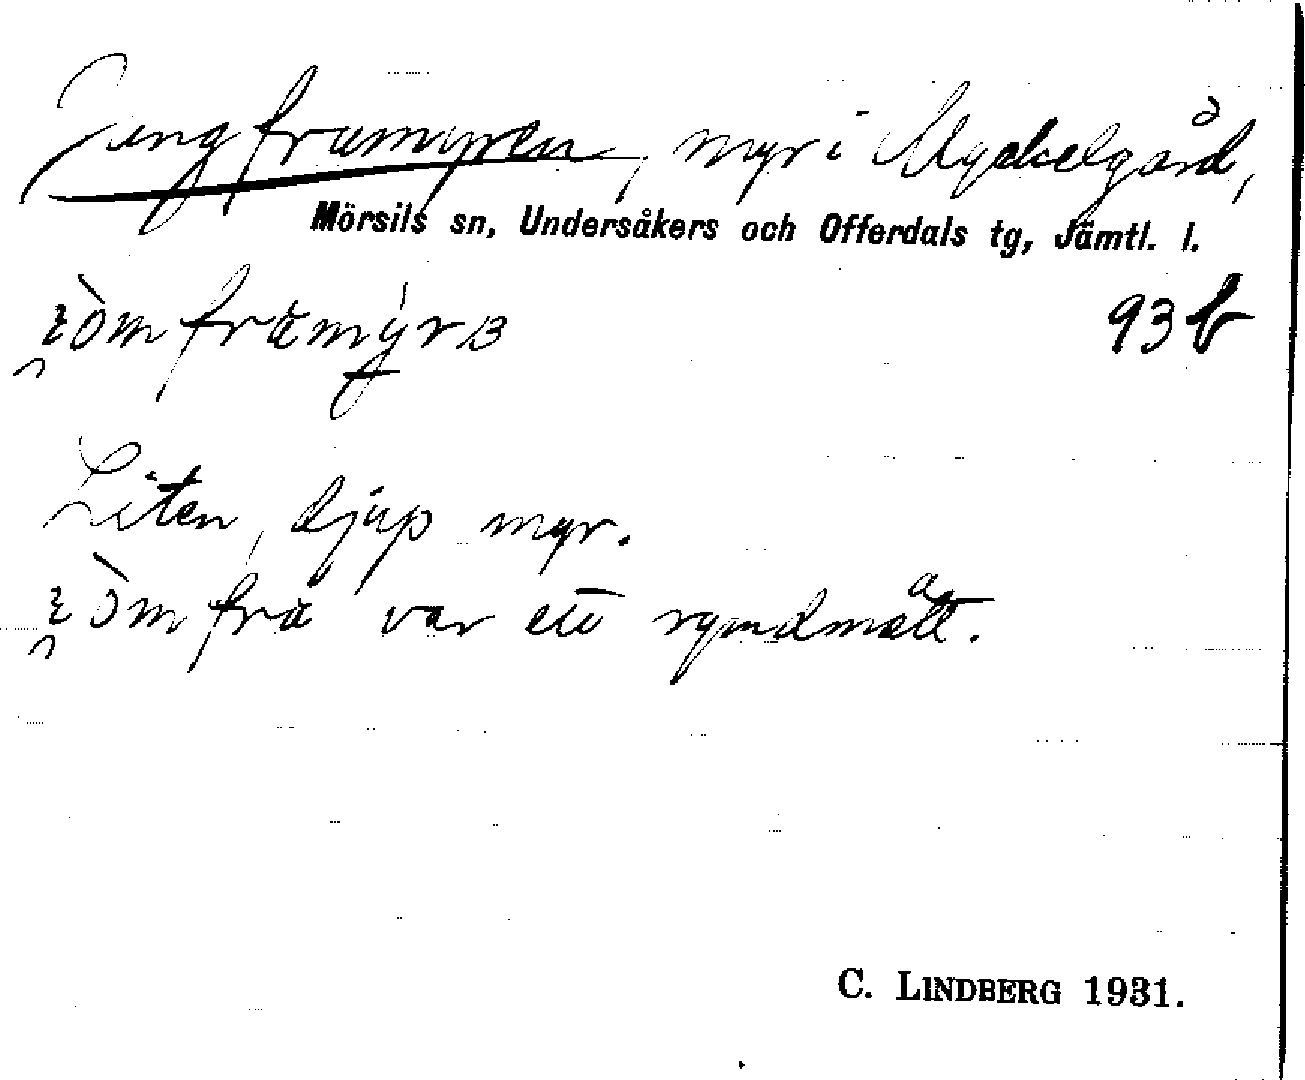 Jungfrumyren, myr i Myckelgård,
Mörsils sn, Undersåkers och Offerdals tg, Jämtl. l.
93 b
Liten, djup myr.
var ett rymdmått.
C. LINDBERG 1931.